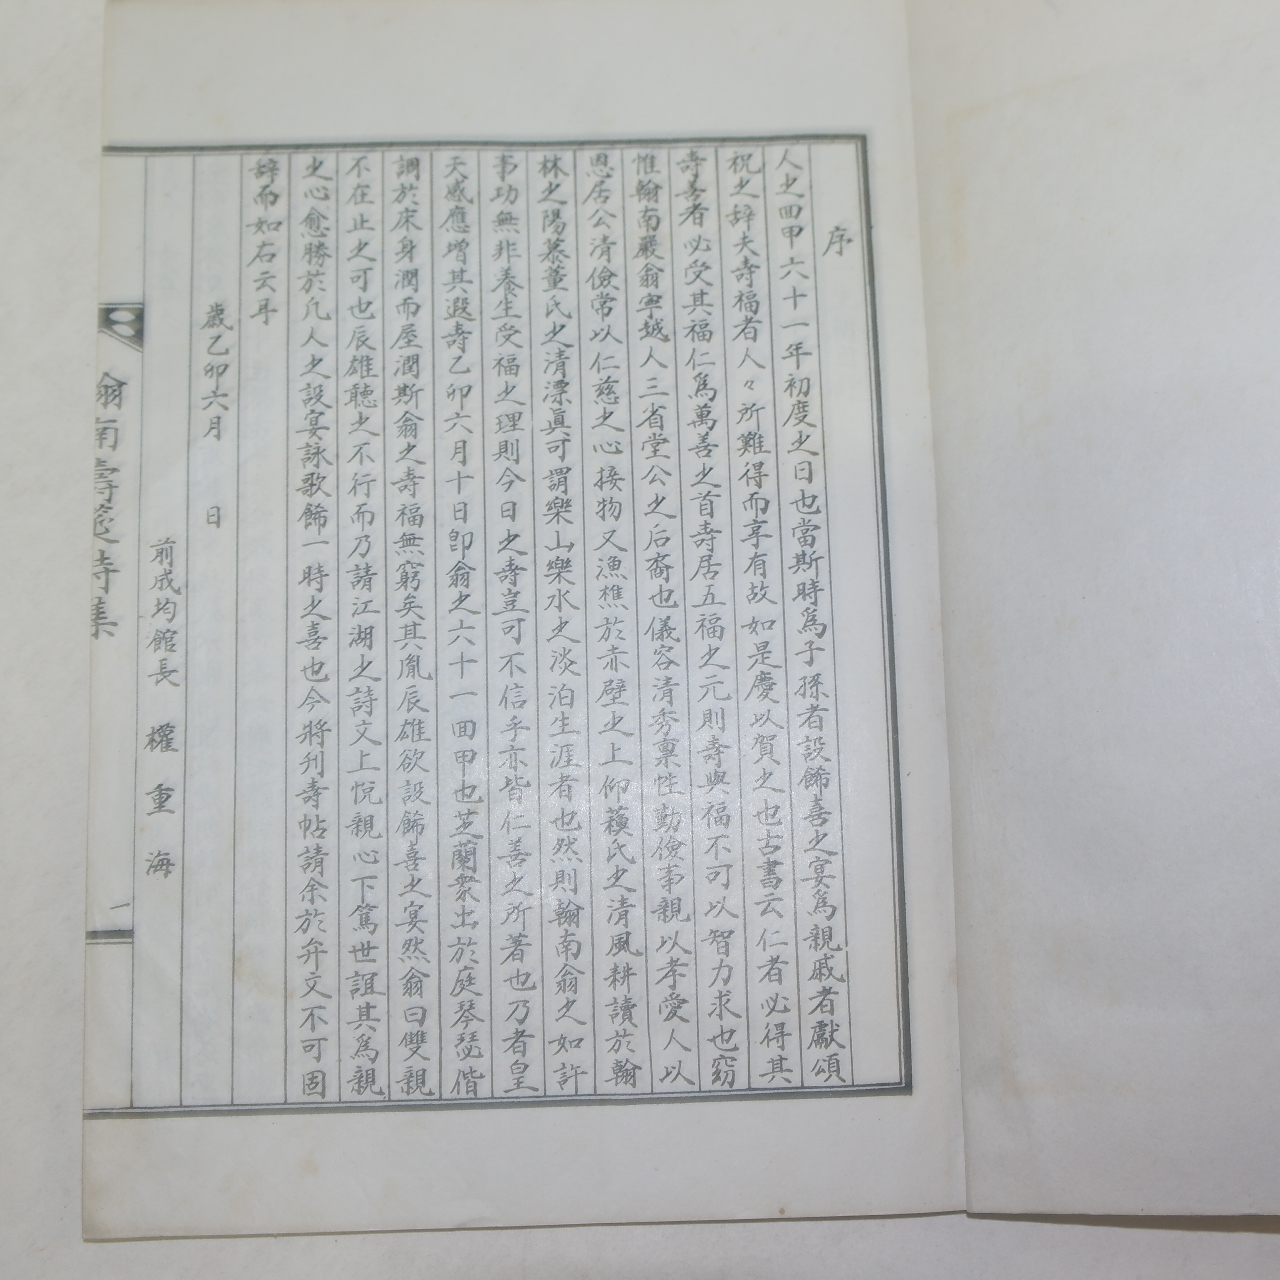 序
人之回甲六十一年初度之日也當斯時爲子孫者設餙喜之宴爲親戚者獻頌
祝之辞夫壽福者人々所難得而享有故如是慶以賀之也古書云仁者必得其
壽善者必受其福仁爲萬善之首壽居五福之元則壽與福不可以智力求也窃
惟翰南嚴翁寧越人三省堂公之后裔也儀容清秀稟性勤儉事親以孝愛人以
恩居公清儉常以仁慈之心接物又漁樵於赤壁之上仰蘓氏之清風耕讀於翰
林之陽慕董氏之清漂眞可謂樂山樂水之淡泊生涯者也然則翰南翁之如許
事功無非養生受福之理則今日之壽豈可不信乎亦皆仁善之所著也乃者皇
天感應增其遐壽乙卯六月十日卽翁之六十一回甲也芝蘭衆出於庭琴瑟偕
調於床身潤而屋潤斯翁之壽福無窮矣其胤辰雄欲設餙喜之宴然翁曰雙親
不在止之可也辰雄聽之不行而乃請江湖之詩文上悅親心下篤世誼其爲親
之心愈勝於凢人之設宴詠歌餙一時之喜也今將刊壽帖請余於弁文不可固
辞而如右云耳
歲乙卯六月　日
前成均館長　權重海
翰南壽筵詩集
一